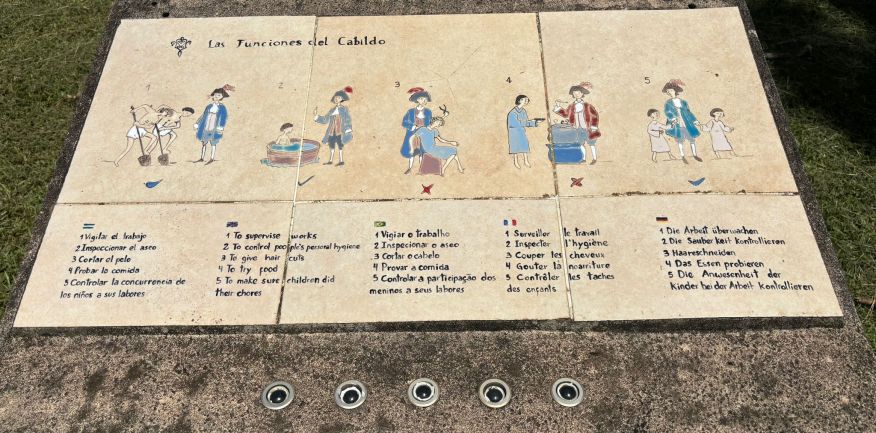 Las Funciones del Cabildo
1
2
3
4
5
1 Vigilar el trabajo
2 Inspeccionar el aseo
3 Cortar el pelo
4 Probar la comida
5 Controlar la concurrencia de
los niños a sus labores
1 To supervise works
2 To control people's personal hygiene
3 To give hair cuts
4 To try food
5 To make sure children did
their chores
1 Vigiar o trabalho
2 Inspecionar o aseo
3 Cortar o cabelo
4 Provar a comida
5 Controlar a participação dos
meninos a seus labores
1 Surveiller le travail
2 Inspecter l'hygiène
3 Couper les cheveux
4 Gouter la nourriture
5 Contrôler les taches
des enfants
1 Die Arbeit überwachen
2 Die Sauberkeit Kontrollieren
3 Haareschneiden
4 Das Essen probieren
5 Die Anwesenheit der
Kinder bei der Arbeit Kontrollieren